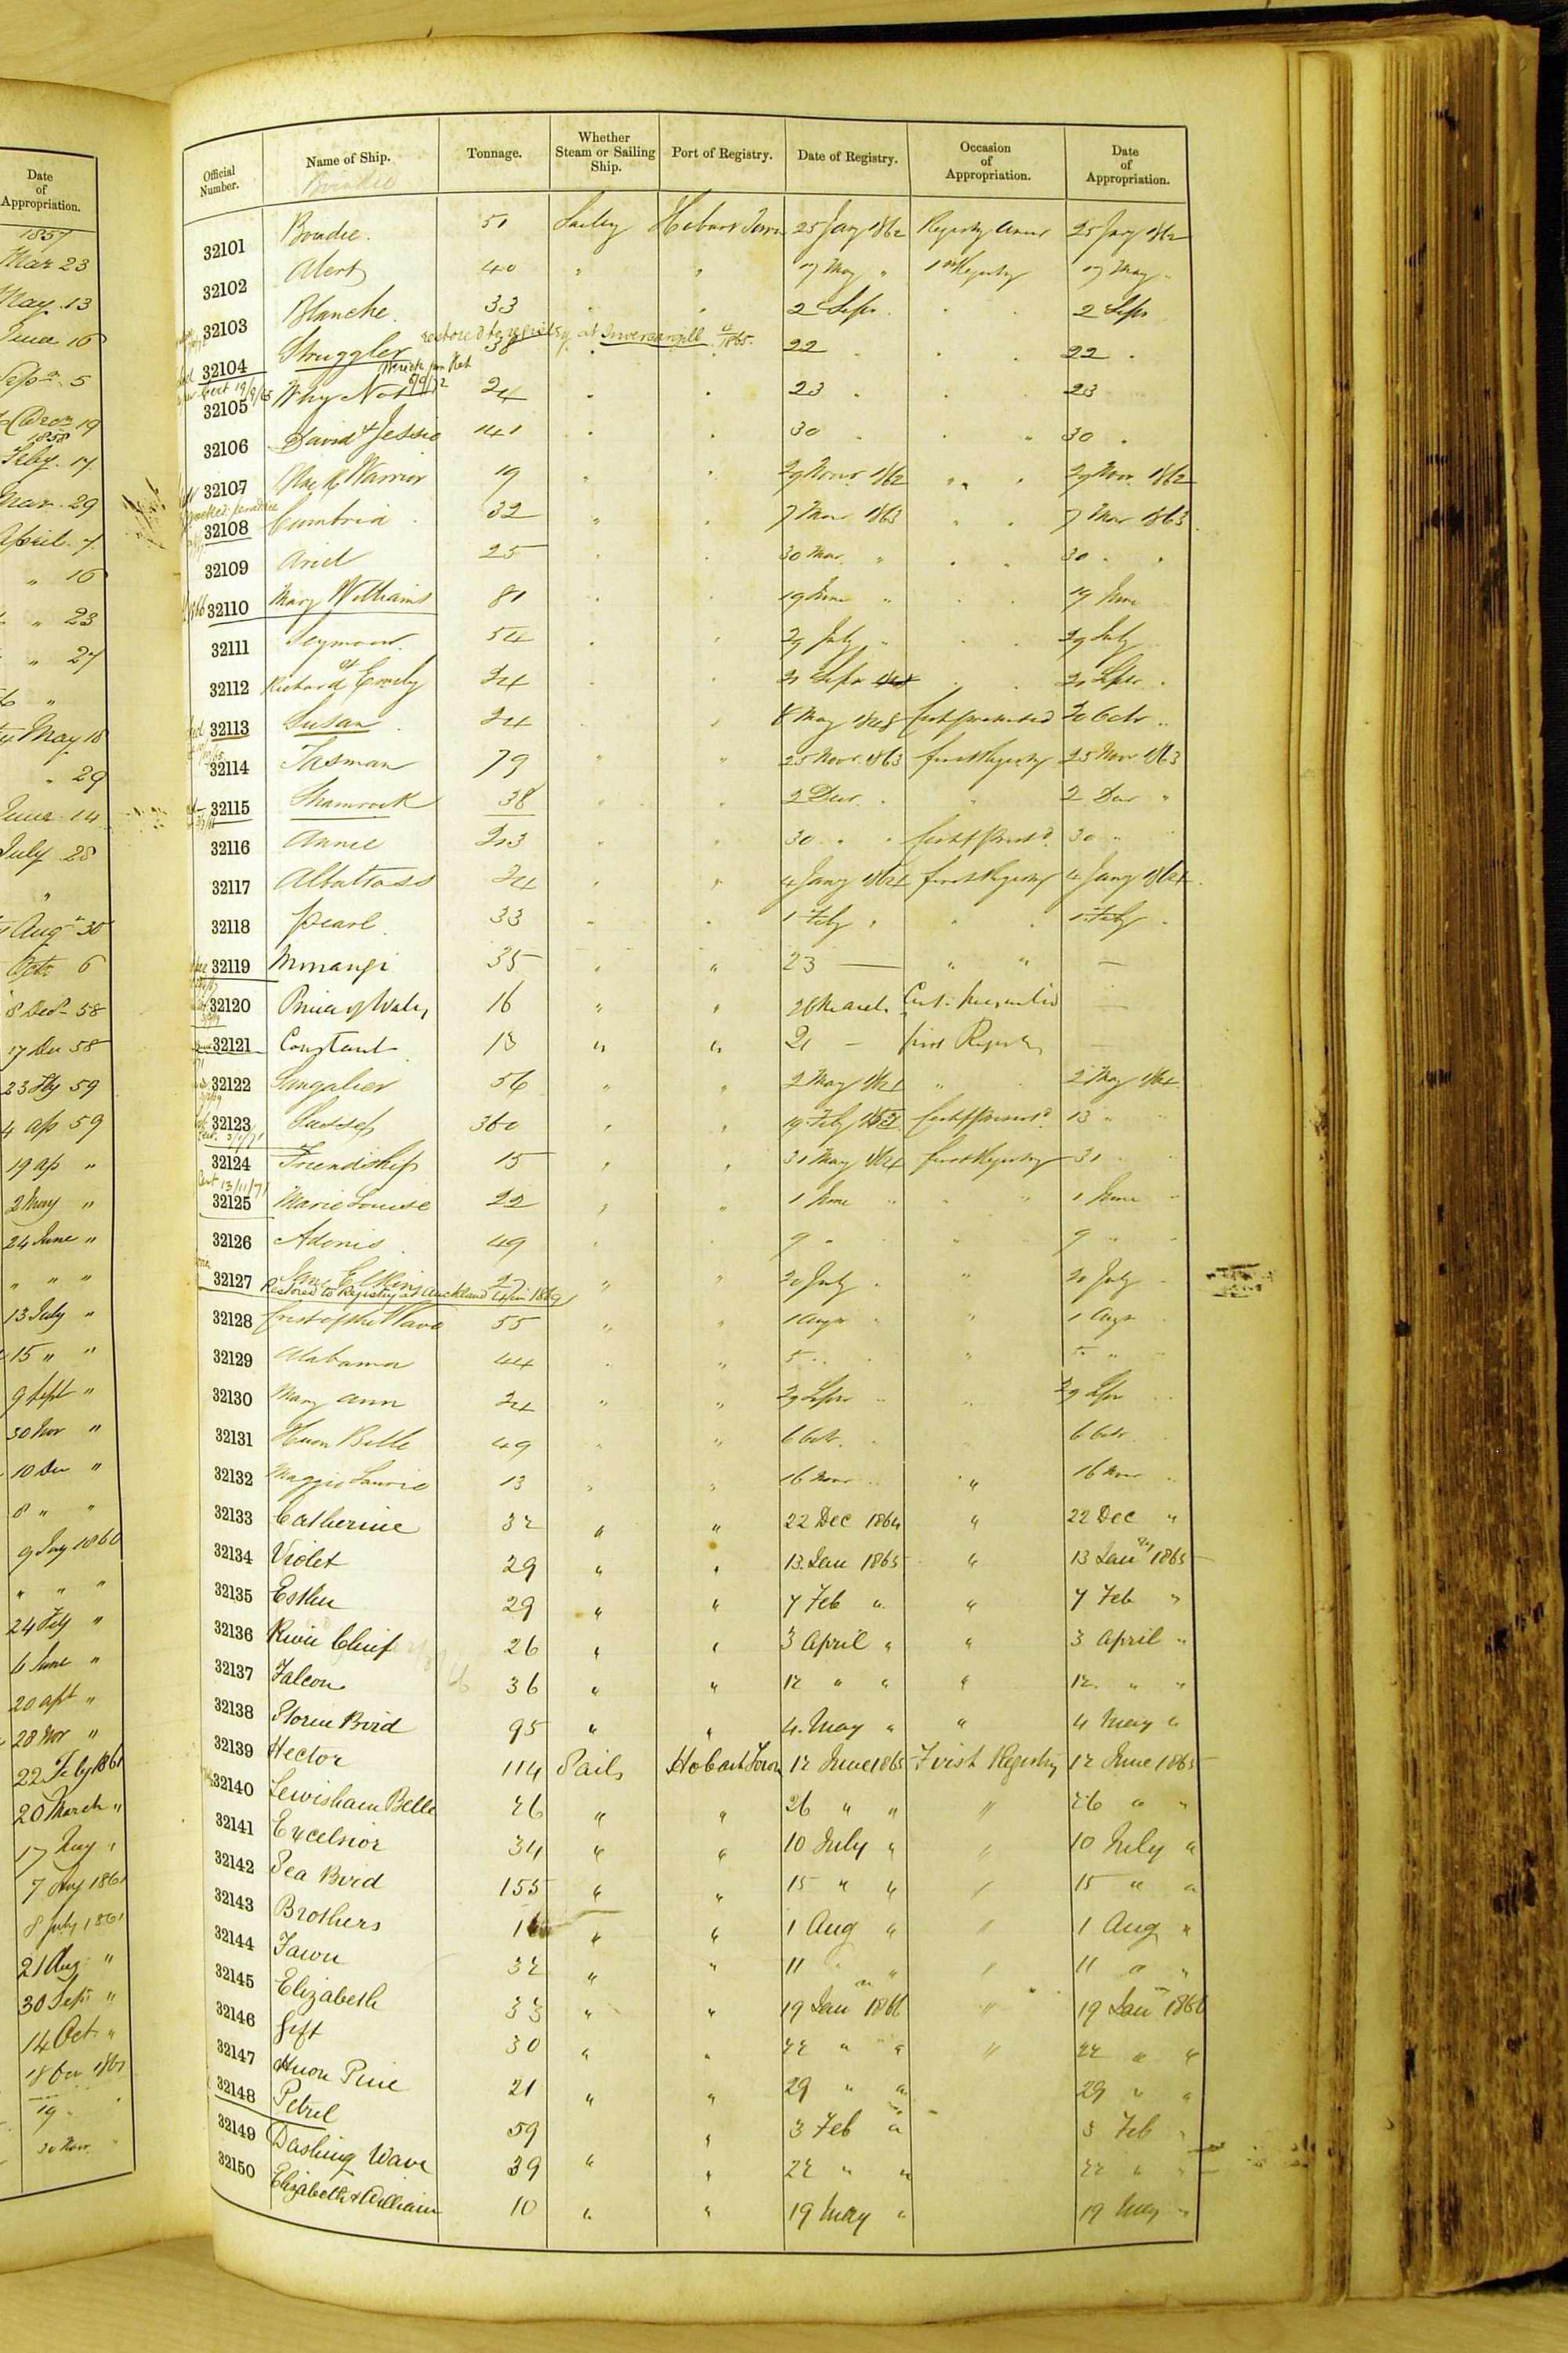 Date of Appropriation.
1857
Mar 23
May 13
June 16
Sep 5
19
1858
Feby. 17
Mar. 29
April 7
" 16
" 23
" 27
"
May 18
" 29
June 14
July 28
"
Aug 30
Oct 6
8 Dec 58
17 Dec 58
23 Fby 59
4 ap 59
19 ap "
2 May "
24 June "
" " "
13 July "
15 " "
9 Sept "
30 Nov "
10 Dec "
8 " "
9 Jay 1860
" " "
24 Feby "
6 June "
20 apl "
28 Nov "
22 Feby 1861
20 March "
17 May "
7 1861
8 July 1861
21 Aug "
30 Sep "
14 Oct "
18 1861
19 "
30 Nov. "
Official Number. Name of Ship. Tonnage. Whether Steam or Sailing Ship. Port of Registry. Date of Registry. Occasion of Appropriation. Date of Appropriation.
32101 51 Sailing Hobart Town 25 Jany 1862 Registry Anew 25 Jany 1862
32102 Alert 40 " " 17 May " 1st Registry 17 May "
32103 Blanche 33 " " 2 Sepr 2 Sepr
restored to registry at Invercargill 1865.
32104 Struggler 38 22 22
32105 Why Not 24 23 23
32106 David & Jessie 141 30 30
32107 Black Warrior 19 29 Novr 1862 " 29 Novr. 1862
32108 Cumbria 32 " 7 Mar 1863 " 7 Mar 1863
32109 Ariel 25 30 Mar. " 30 "
32110 Mary Williams 81 19 June " 19 June
32111 Seymour 54 29 July " 29 July
32112 Richard & Emily 24 21 Sepr 21 Sepr
32113 Susan 24 8 May 1848 20 Octr "
32114 Tasman 79 " " 25 Novr 1863 first Registry 25 Novr 1863
32115 Shamrock 38 2 Decr " 2 Decr "
32116 Annie 30 " " 30 "
32117 Albatross 24 " " 4 Jany 1864 first Registry 4 Jany 1864
32118 Pearl 33 1 Feby " " 1 Feby
32119 35 " " 23 — " " —
32120 Prince of Wales 16 " " March —
32121 Constant 13 " " 21 — first Registry —
32122 Sangalier 56 " " 2 May 1864 " 2 May 1864
32123 360 " " 19 Feby 13 "
32124 Friendship 15 " " 31 May 1864 first Registry 31 "
Cert 13/11/71
32125 Marie Louise 22 " " 1 June " " 1 June "
32126 Adonis 49 9 " " 9 "
32127 Jane Elkin 27 " " 20 July " 20 July
Restored to Registry at Auckland 1869
32128 Crest of the Wave 55 " " 1 Augt " 1 Augt
32129 Alabama 44 " 5 " " 5 "
32130 Mary Ann 24 " " 29 Sepr " 29 Sepr
32131 Huon Belle 49 " " 6 Octr. 6 Octr
32132 Maggie Laurie 13 " " 16 Novr " 16 Novr
32133 Catherine 32 " " 22 Dec 1864 " 22 Dec "
32134 Violet 29 " " 13. Jan 1865 " 13 Jan 1865
32135 Esther 29 " " 7 Feb " " 7 Feb "
32136 River Chief 26 " " 3 April " " 3 April "
32137 Falcon 36 " " 12 " " " 12. " "
32138 Storm Bird 95 " " 4. May " " 4 May "
32139 Hector 114 Sails Hobart Town 12 June 1865 First Registry 12 June 1865
32140 Lewisham Belle 26 " " 26 " " " 26 " "
32141 Excelsior 34 " " 10 July " " 10 July "
32142 Sea Bird 155 " " 15 " " " 15 " "
32143 Brothers " " 1 Aug " " 1 Aug "
32144 Fawn 32 " " 11 " " " 11 " "
32145 Elizabeth 33 " " 19 Jan 1866 " 19 Jan 1866
32146 Gift 30 " " 22 " " " 22 " "
32147 Huon Pine 21 " " 29 " " 29 " "
32148 Petrel 59 " 3 Feb " 3 Feb "
32149 Dashing Wave 39 " " 22 " " 22 " "
32150 Elizabeth & William 10 " " 19 May " 19 May "